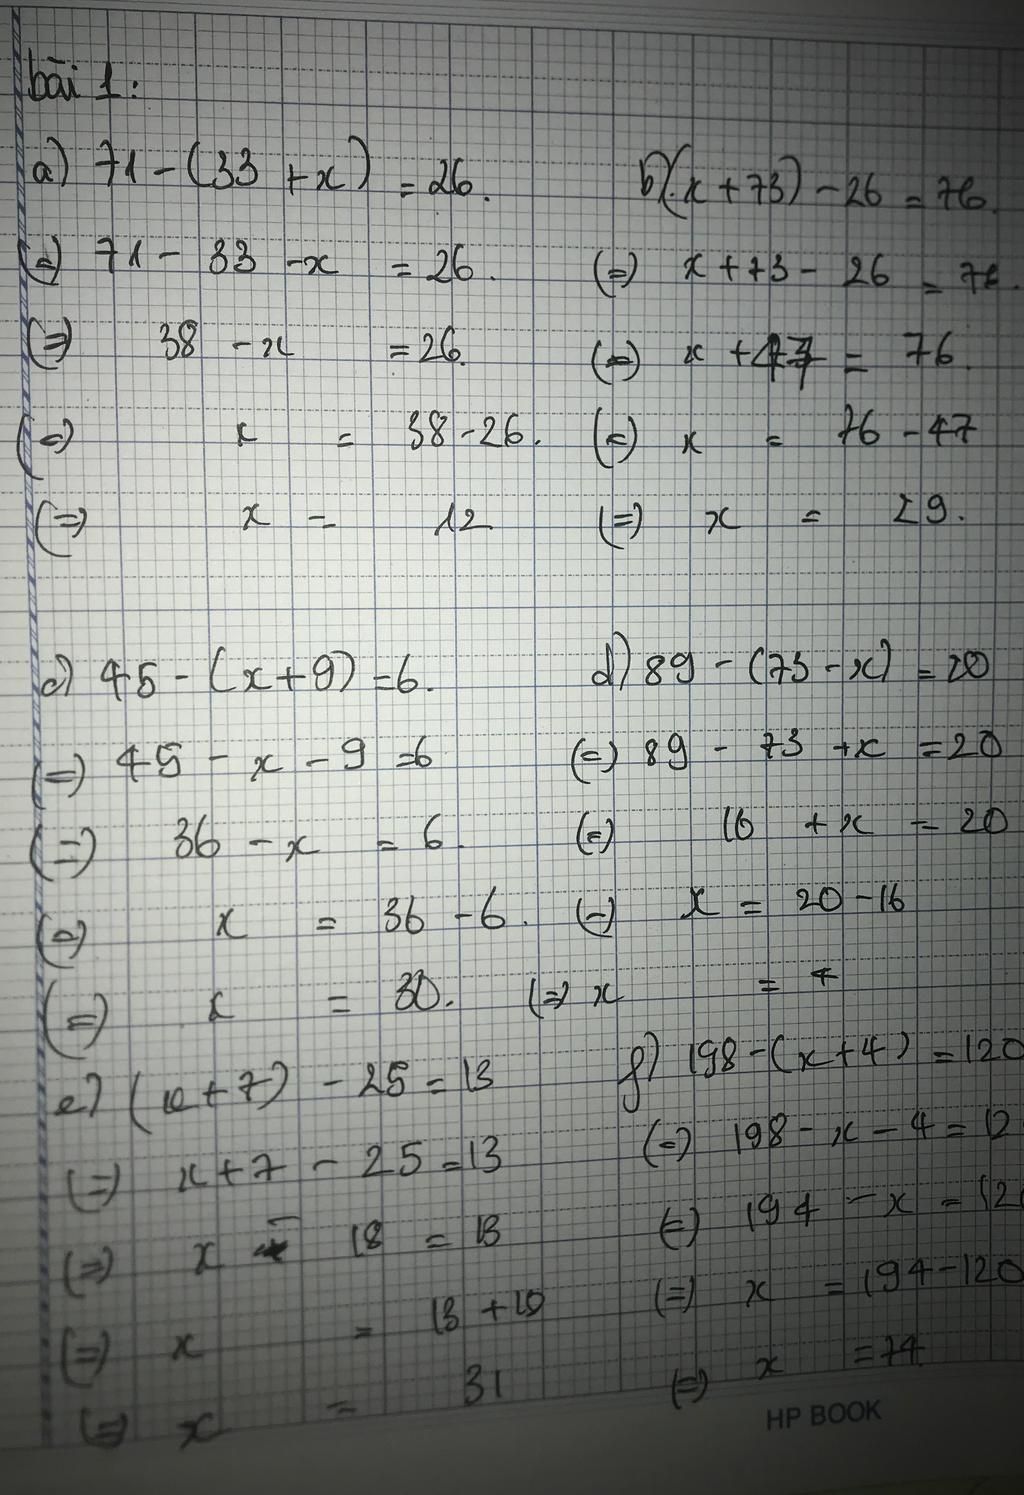 bài 1:
a) 71 - (33 + x) = 26.
(=) 71 - 33 - x = 26.
(=) 38 - x = 26.
(=) x = 38 - 26.
(=) x = 12
b) (x + 73) - 26 = 76.
(=) x + 73 - 26 = 76.
(=) x + 47 = 76.
(=) x = 76 - 47
(=) x = 29.
c) 45 - (x + 9) = 6.
(=) 45 - x - 9 = 6
(=) 36 - x = 6.
(=) x = 36 - 6.
(=) x = 30.
d) 89 - (73 - x) = 20
(=) 89 - 73 + x = 20
(=) 16 + x = 20
(=) x = 20 - 16
(=) x = 4
e) (x + 7) - 25 = 13
(=) x + 7 - 25 = 13
(=) x - 18 = 13
(=) x = 13 + 18
(=) x = 31
f) 198 - (x + 4) = 120
(=) 198 - x - 4 = 12
(=) 194 - x = 120
(=) x = 194 - 120
(=) x = 74
HP BOOK